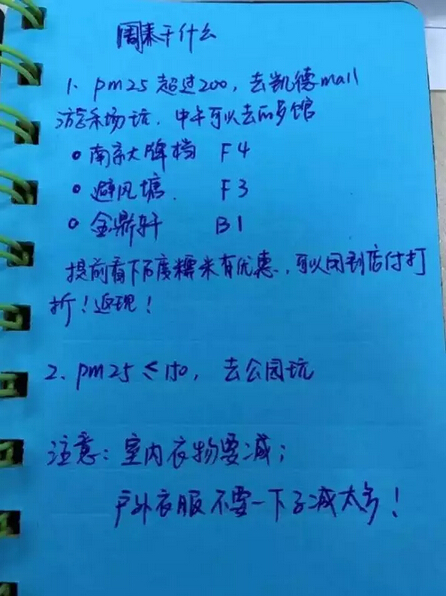 周末干什么
1. pm25 超过200, 去凯德mall
游乐场玩. 中午可以去的餐馆
• 南京大牌档 F4
• 避风塘 F3
• 金鼎轩 B1
提前看下百度糯米有优惠, 可以用到店付打
折!返现!
2. pm25 ≤150, 去公园玩
注意: 室内衣物要减;
户外衣服不要一下子减太多!